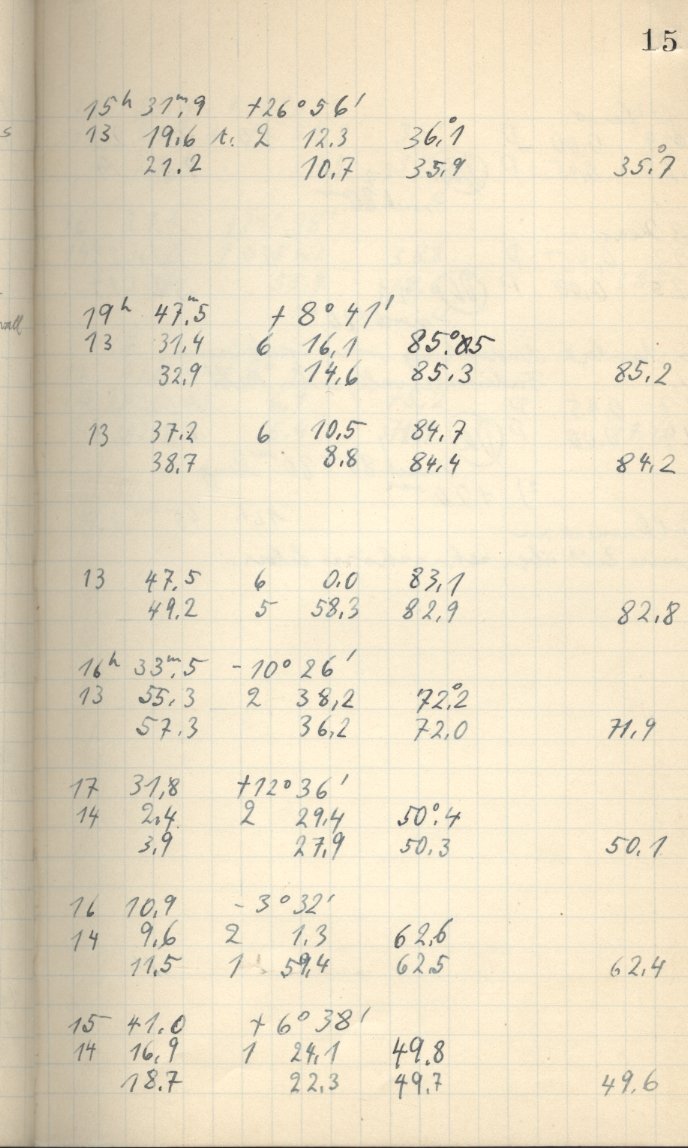 15
15ʰ 31ᵐ.9 +26° 56'
13 19.6 t. 2 12.3 36°.1
21.2 10.7 35.9 35°.7
19ʰ 47ᵐ.5 + 8° 41'
13 31.4 6 16,1 85°.5
32,9 14,6 85.3 85.2
13 37.2 6 10,5 84.7
38.7 8.8 84.4 84.2
13 47.5 6 0.0 83,1
49.2 5 58,3 82,9 82,8
16ʰ 33ᵐ.5 -10° 26'
13 55.3 2 38,2 72°.2
57.3 36,2 72.0 71,9
17 31,8 +12° 36'
14 2.4 2 29.4 50°.4
3,9 27,9 50.3 50.1
16 10,9 - 3° 32'
14 9,6 2 1.3 62,6
11,5 1 59,4 62.5 62,4
15 41.0 + 6° 38'
14 16,9 1 24,1 49.8
18.7 22,3 49,7 49,6